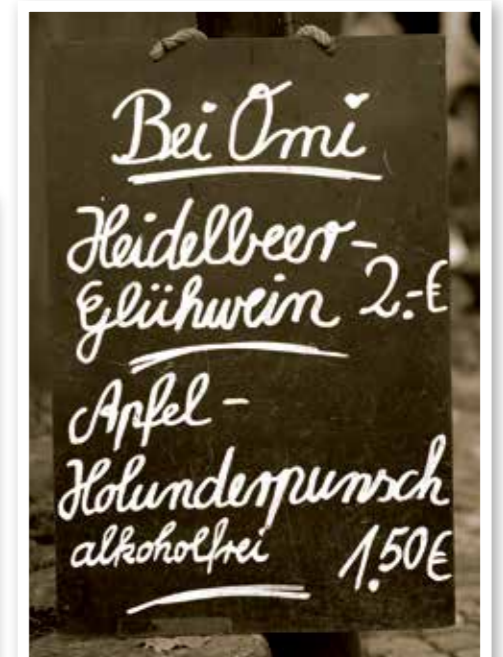 Bei Omi
Heidelbeer-
Glühwein 2.-€
Apfel-
Holunderpunsch
alkoholfrei 1.50€